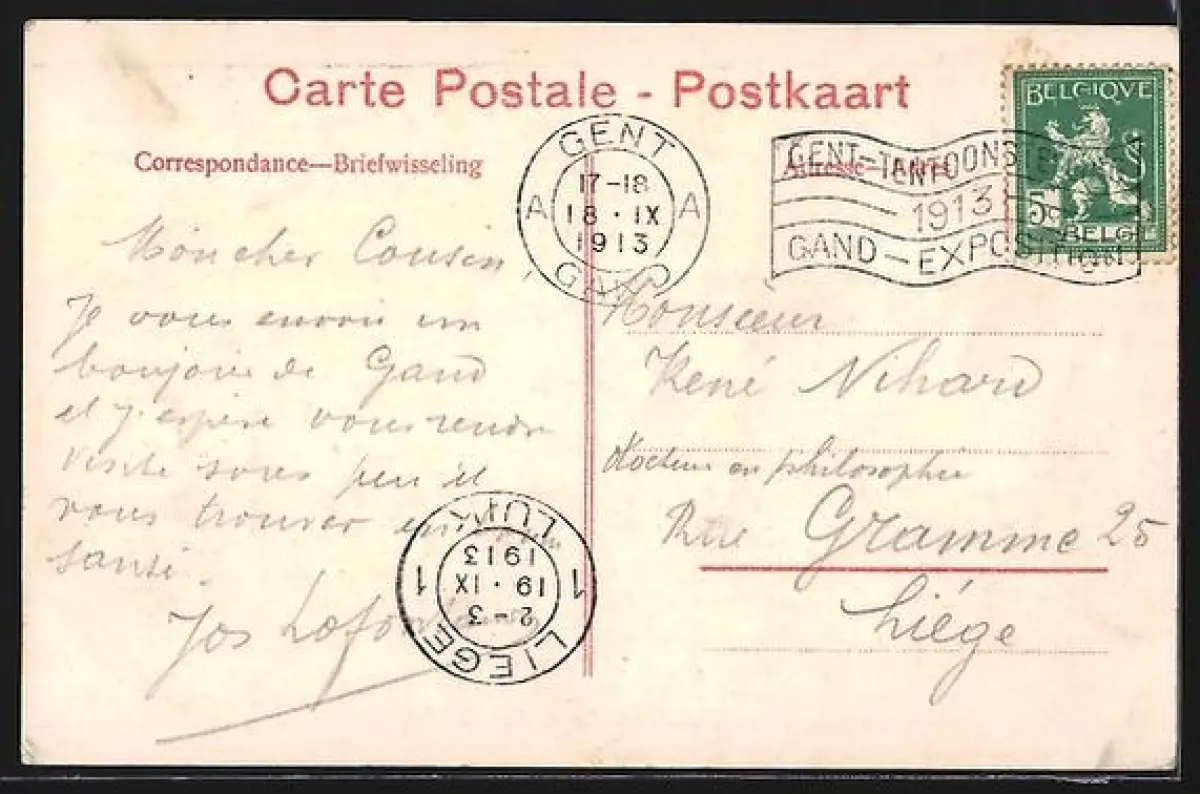 Carte Postale - Postkaart
Correspondance—Briefwisseling
Adresse—Adres
GENT
A 17-18 A
18 · IX
1913
GAND
GENT-TENTOONS
1913
GAND-EXPOSITION
BELGIQVE
5
BELG
Mon cher Cousin,
Je vous envoie un
bonjour de Gand
et j'espère vous rendre
visite sous peu et
vous trouver en
santé.
Jos
Monsieur
René Nihard
Docteur en philosophie
Rue Gramme 25
Liége
LIEGE
2-3
1 19 · IX 1
1913
LUIK